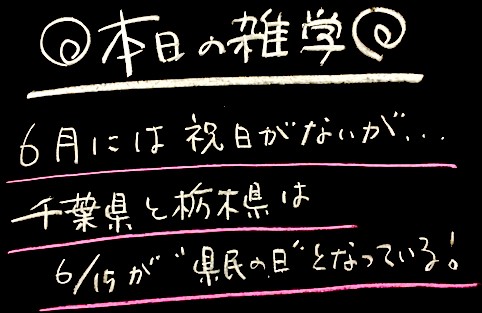 本日の雑学
6月には祝日がないが...
千葉県と栃木県は
6/15が"県民の日"となっている!